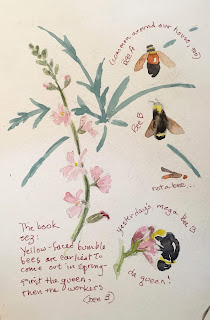 (common around our house, too)
Bee A
Bee B
not a bee...
Yesterday's mega Bee B
da queen!
The book
sez:
Yellow-faced bumble
bees are earliest to
come out in spring-
first the queen
then the workers
(bee B)